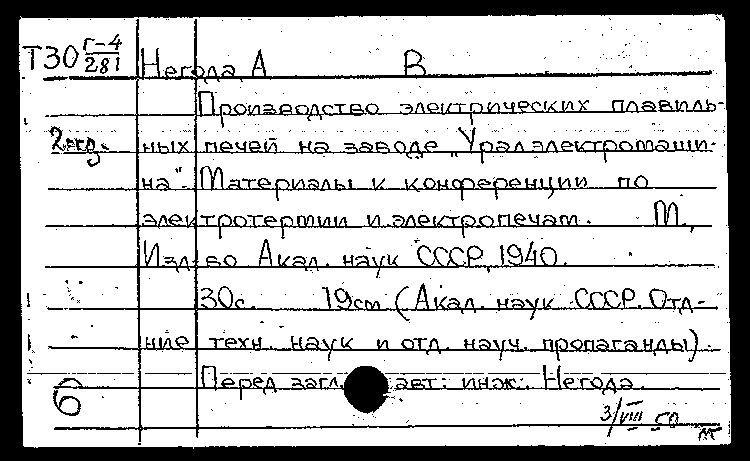 Т30 Г-4/281 Негода А В
Производство электрических плавиль-
2 экз. ных печей на заводе „Уралэлектромаши-
на". Материалы к конференции по
электротермии и электропечам. М.,
Изд-во Акад. наук СССР, 1940.
30с. 19см (Акад. наук СССР. Отд-
ние техн. наук и отд. науч. пропаганды).
Перед загл. авт: инж. Негода.
6
3/VIII 50